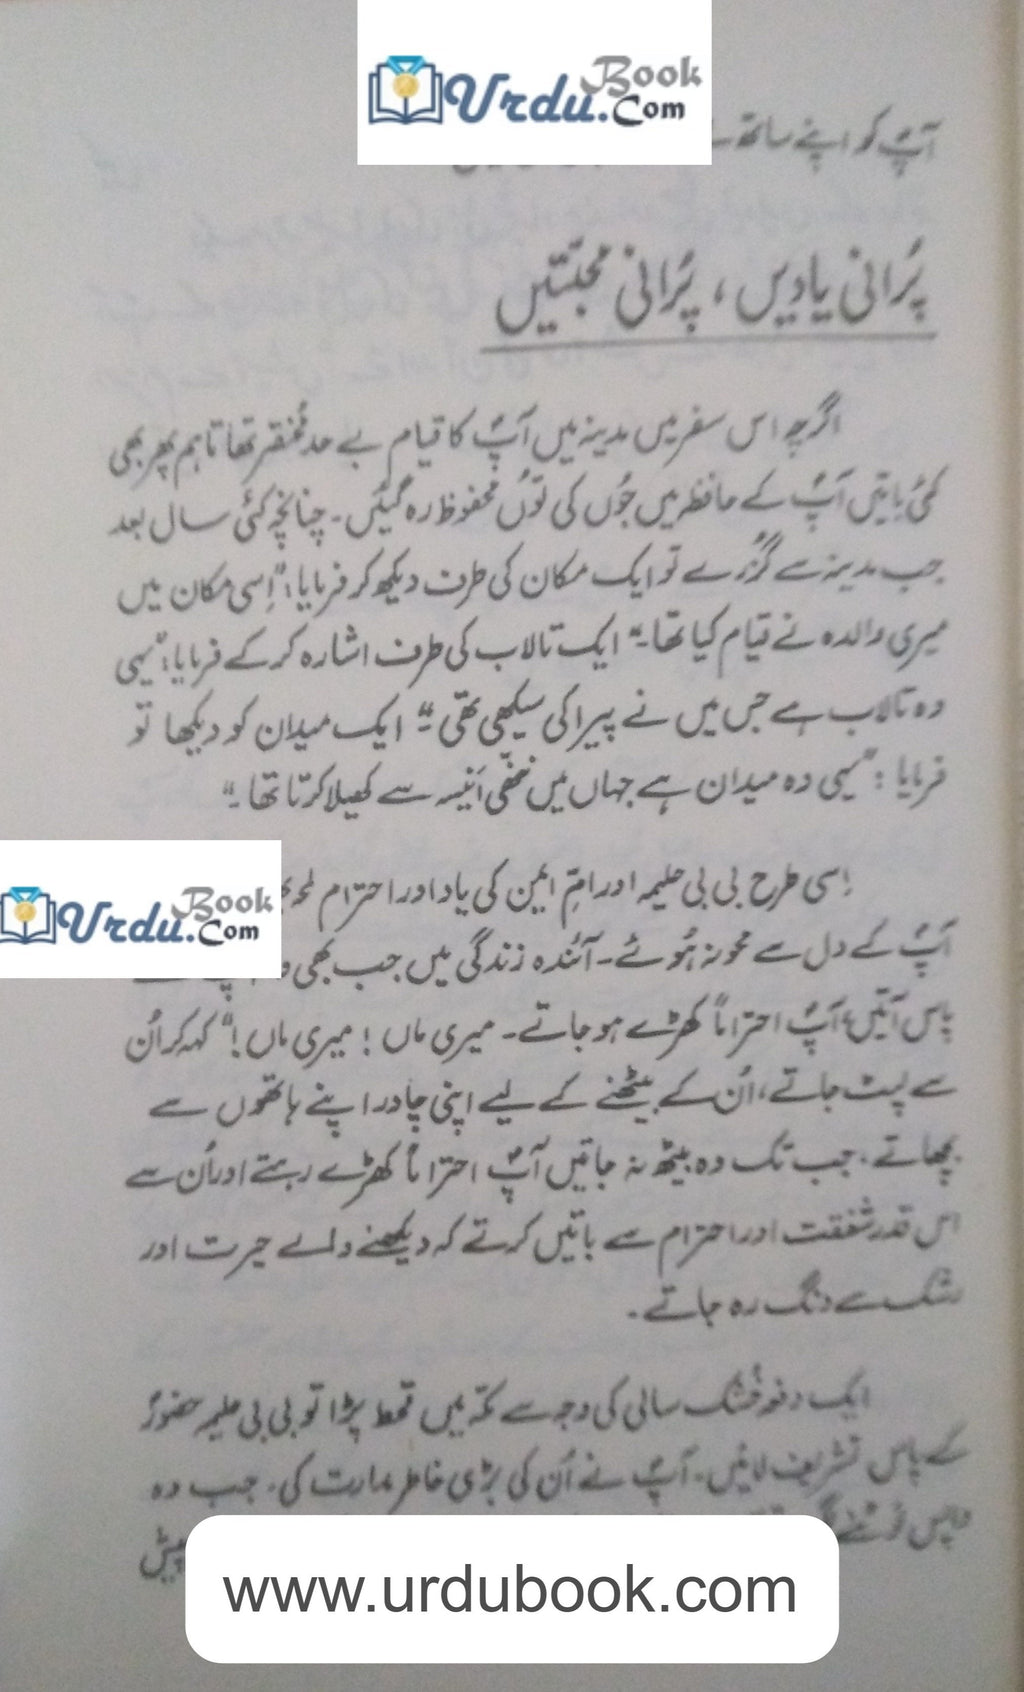 Urdu Book .Com
آپؐ کو اپنے ساتھ
پُرانی یادیں، پُرانی محبّتیں
اگرچہ اس سفر میں مدینہ میں آپؐ کا قیام بے حد مختصر تھا تاہم پھر بھی
کئی باتیں آپؐ کے حافظہ میں جُوں کی تُوں محفوظ رہ گئیں۔ چنانچہ کئی سال بعد
جب مدینہ سے گُزرے تو ایک مکان کی طرف دیکھ کر فرمایا: "اِسی مکان میں
میری والدہ نے قیام کیا تھا۔" ایک تالاب کی طرف اشارہ کر کے فرمایا: "یہی
وہ تالاب ہے جس میں نے پیراکی سیکھی تھی۔" ایک میدان کو دیکھا تو
فرمایا: "یہی وہ میدان ہے جہاں میں ننھّی اَنیسہ سے کھیلا کرتا تھا۔"
اِسی طرح بی بی حلیمہ اور امِّ ایمن کی یاد اور احترام
Urdu Book .Com
آپؐ کے دل سے محو نہ ہُوئے۔ آئندہ زندگی میں جب بھی
پاس آتیں، آپؐ احتراماً کھڑے ہو جاتے۔ میری ماں! میری ماں!" کہہ کر اُن
سے لپٹ جاتے، اُن کے بیٹھنے کے لیے اپنی چادر اپنے ہاتھوں سے
بچھاتے۔ جب تک وہ بیٹھ نہ جاتیں آپؐ احتراماً کھڑے رہتے اور اُن سے
اس قدر شفقت اور احترام سے باتیں کرتے کہ دیکھنے والے حیرت اور
رشک سے دنگ رہ جاتے۔
ایک دفعہ خُشک سالی کی وجہ سے مکّہ میں قحط پڑا تو بی بی حلیمہ حضورؐ
کے پاس تشریف لائیں۔ آپؐ نے اُن کی بڑی خاطر مدارت کی۔ جب وہ
واپس لَوٹنے
www.urdubook.com